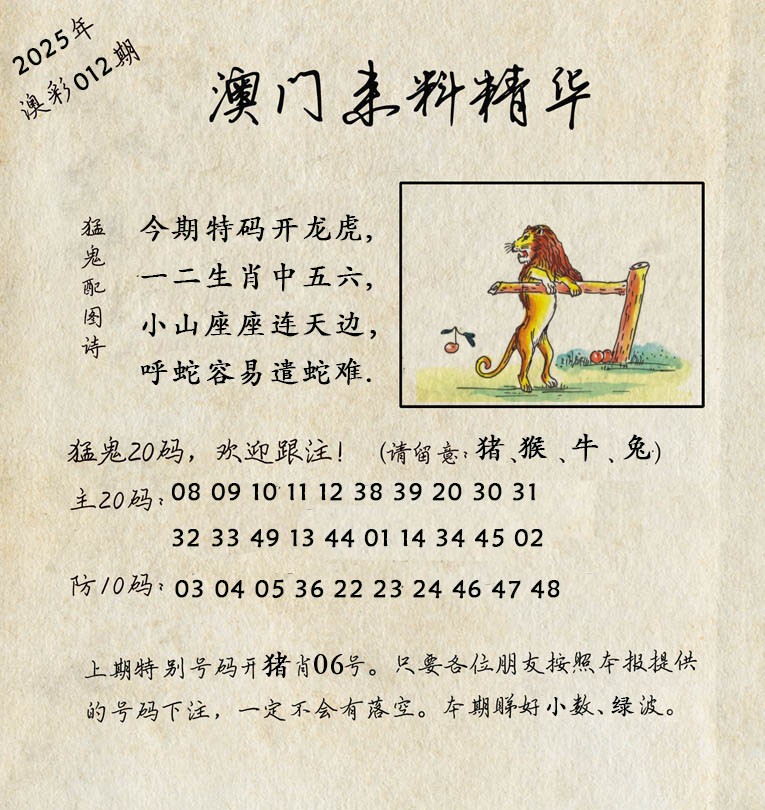 2025年
澳彩012期
澳门来料精华
猛鬼配图诗
今期特码开龙虎,
一二生肖中五六,
小山座座连天边,
呼蛇容易遣蛇难.
猛鬼20码，欢迎跟注！ (请留意:猪、猴、牛、兔)
主20码: 08 09 10 11 12 38 39 20 30 31
32 33 49 13 44 01 14 34 45 02
防10码: 03 04 05 36 22 23 24 46 47 48
上期特别号码开猪肖06号。只要各位朋友按照本报提供
的号码下注，一定不会有落空。本期睇好小数、绿波。